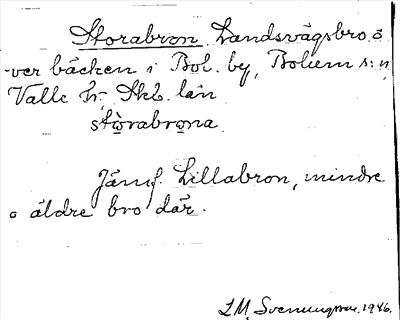 Storabron Landsvägsbro ö
-ver bäcken i Bol. by, Bolum s:n,
Valle hr. Skb. län
stòrabrona.
Jämf. Lillabron, mindre
o äldre bro där.
1946.